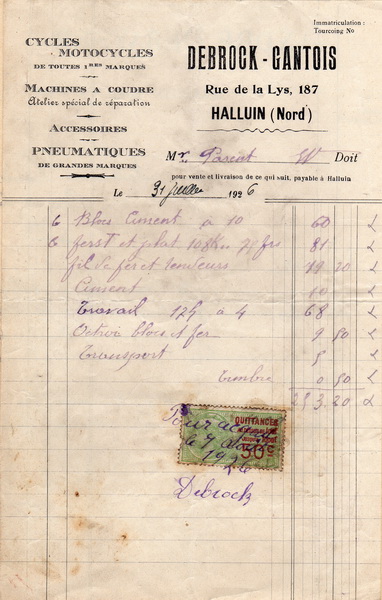 Immatriculation :
Tourcoing No
CYCLES
MOTOCYCLES
DE TOUTES 1RES MARQUES
MACHINES A COUDRE
Atelier spécial de réparation
ACCESSOIRES
PNEUMATIQUES
DE GRANDES MARQUES
DEBROCK-GANTOIS
Rue de la Lys, 187
HALLUIN (Nord)
Mr Parent W Doit
pour vente et livraison de ce qui suit, payable à Halluin
Le 31 juillet 1926
6 Blocs Ciment à 10 60
6 et plat 81
fil de fer et tendeurs 20
Ciment 10
Travail à 4 68
Octroi blocs et fer 9 50
Transport 5
Timbre 0 50
253.20
QUITTANCES
50c
Pour acquit
le 4 août
1926
Debrock